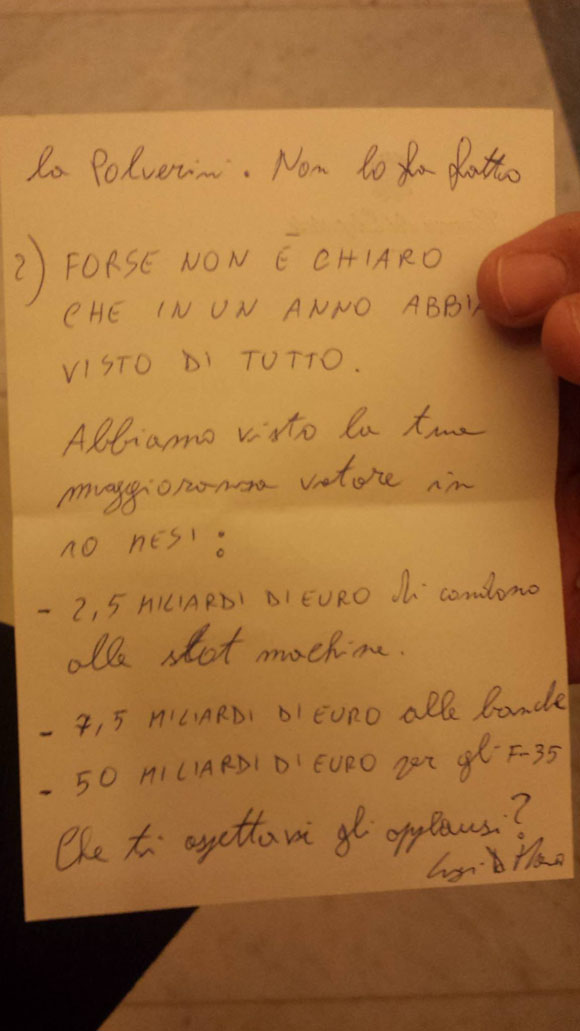 la Polverini. Non lo fa fatto
2) FORSE NON È CHIARO
CHE IN UN ANNO ABBIA
VISTO DI TUTTO.
Abbiamo visto la tua
maggioranza votare in
10 MESI:
- 2,5 MILIARDI DI EURO di condono
alle slot machine.
- 7,5 MILIARDI DI EURO alle banche
- 50 MILIARDI DI EURO per gli F-35
Che ti aspettavi gli applausi?
Luigi Di Maio